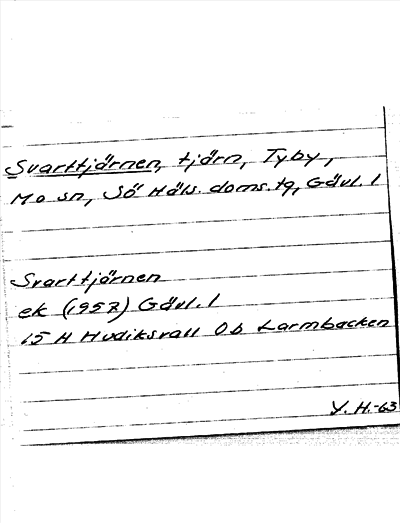 Svarttjärnen, tjärn, Tyby,
Mo sn, Sö Häls. doms. tg, Gävl. l
Svarttjärnen
ek (1957) Gävl. l
15 H Hudiksvall 0b Larmbacken
Y. H.-63